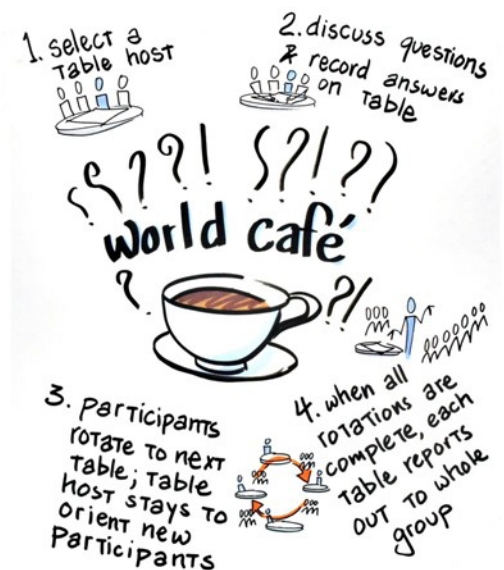 1. select a
Table host
2. discuss questions
& record answers
on Table
world café
3. participants
rotate to next
Table; Table
host stays to
orient new
participants
4. when all
rotations are
complete, each
Table reports
out to whole
group